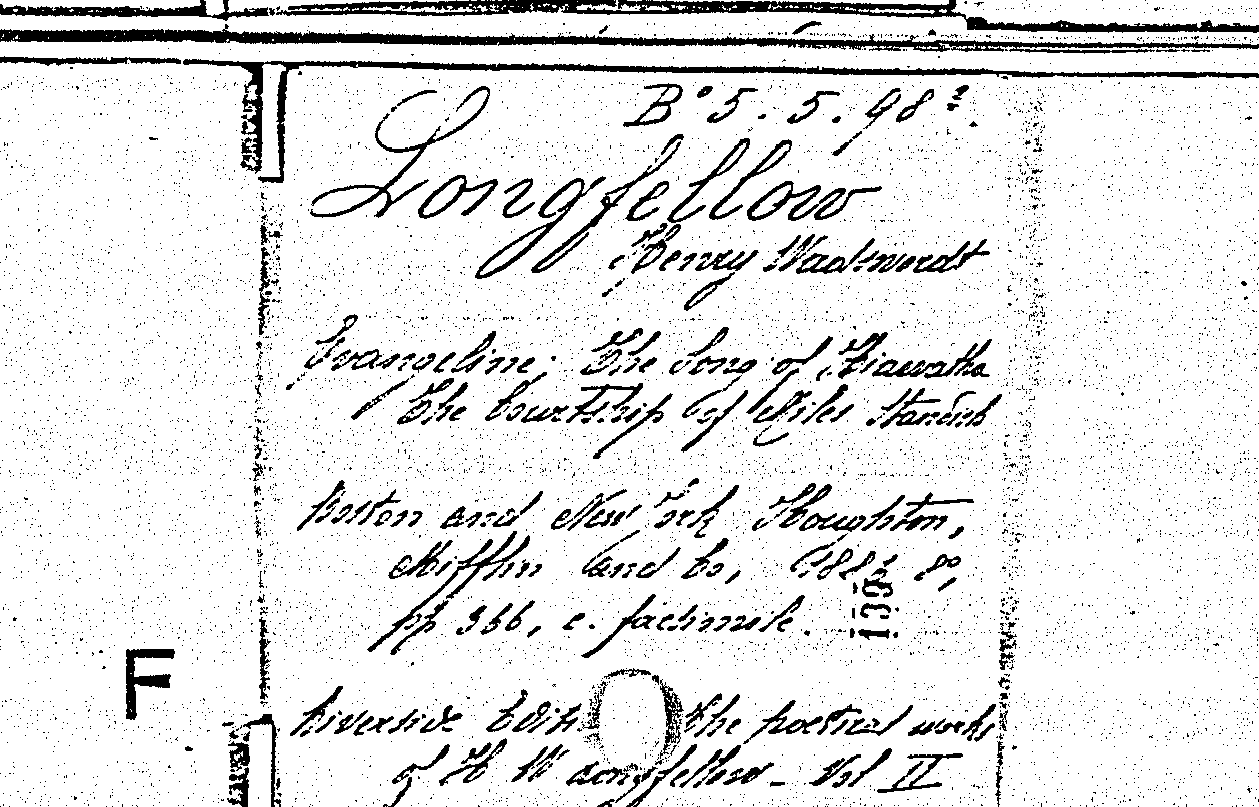 B° 5. 5. 98².
Longfellow
Henry Wadswordt
Evangeline; The Song of Hiawatha
The Courtship of Miles Standish
Boston and New York Houghton,
Mifflin and Co, 8°,
pp 366, c. facsimile.
139
F
Riverside Edit The poetical works
of H W Longfellow - Vol II